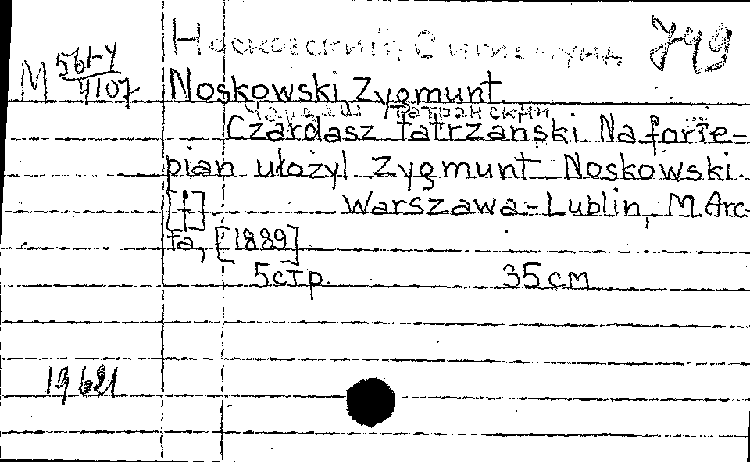 Носковский, Сигизмунд
M
Noskowski Zygmunt
Чардаш Татранский
Czardasz Tatrzański Na forte=
pian ułożył Zygmunt Noskowski.
[+] Warszawa-Lublin, M. Arc
ta, [1889]
5 стр. 35 см
19621